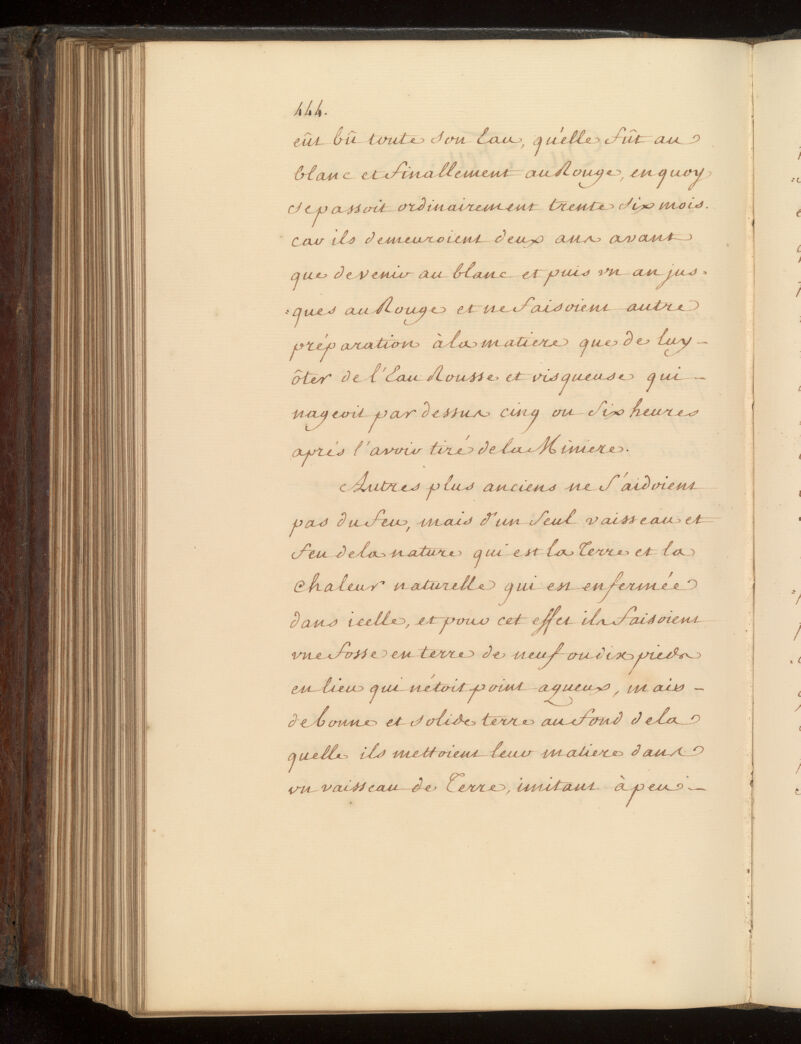 444.
eût bû toute son Eau, qu'elle fût au
blanc et finallement au Rouge, en quoy
se passoit ordinairement trente six mois.
car ils demeuroient deux ans avant
que devenir au blanc et puis vn an jus-
-ques au Rouge et ne faisoient autre
préparation à la matiere que de luy -
ôter de l'Eau Rousse et visqueuse qui -
nageoit par dessus cinq ou six heures
aprés l'avoir tiré de la Miniere.
Autres plus anciens ne s'aidoient
pas du feu, mais d'un seul vaisseau et
feu de la nature qui est la Terre et la
Chaleur naturelle qui est enfermée
dans icelle, et pour cet effet ils faisoient
vne fosse en terre de neuf ou dix pieds
en lieu qui nétoit point aqueux, mais -
de bonne et solide terre au fond de la
quelle ils mettoient leur matiere dans
vn vaisseau de Terre, imitant à peu -